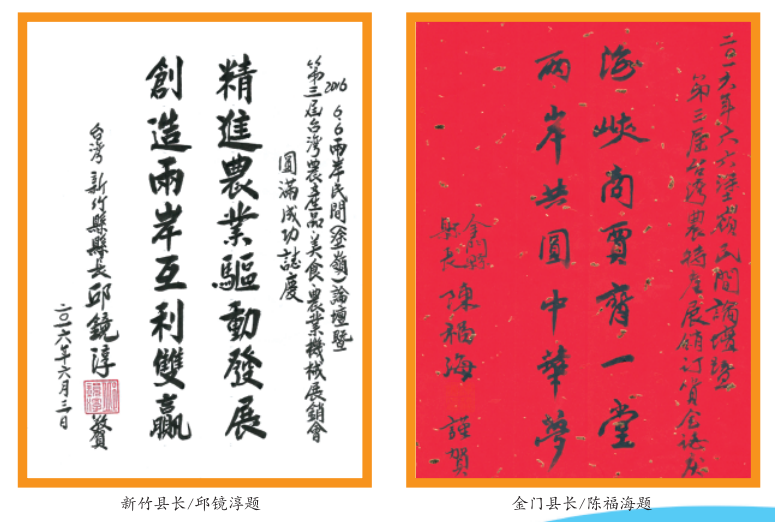 2016 6.6兩岸民間(塗嶺)論壇暨
第三屆台灣農產品、美食、農業機械展銷會
圓滿成功誌慶
精進農業驅動發展
創造兩岸互利雙贏
台灣新竹縣縣長邱鏡淳敬賀
二〇一六年六月三日
新竹县长/邱镜淳题
二〇一六年六六塗嶺民間論壇暨
第三屆台灣農特產展銷訂貨會誌慶
海峽商賈齊一堂
兩岸共圓中華夢
金門縣
縣長陳福海 謹賀
金门县长/陈福海题